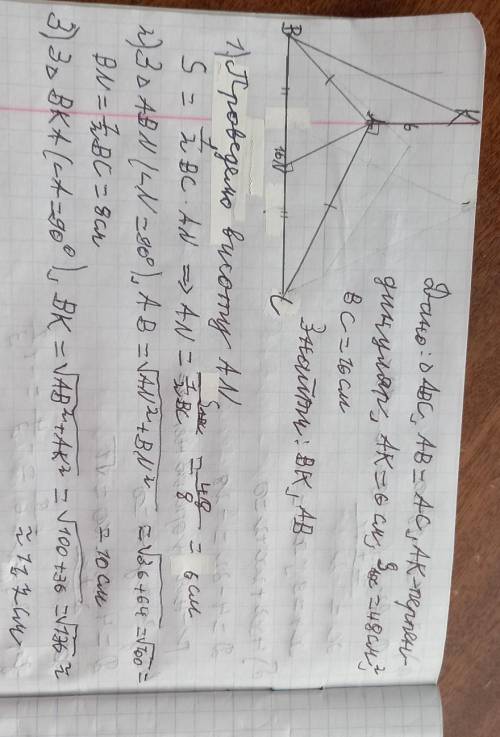 Дано: △ABC, AB = AC, AK-перпен-
дикуляр, AK = 6 см, S = 48 см²
BC = 16 см
Знайти: BK, AB
K
6
A
B
16
N
C
1) Проведемо висоту AN
S = 1/2 BC · AN => AN = S/(1/2 BC) = 48/8 = 6 см
2) З △ABN (∠N = 90°), AB = √(AN² + BN²) = √(36+64) = √100 =
BN = 1/2 BC = 8 см = 10 см
3) З △BKA (∠A = 90°), BK = √(AB² + AK²) = √(100+36) = √136 ≈
≈ 11,7 см